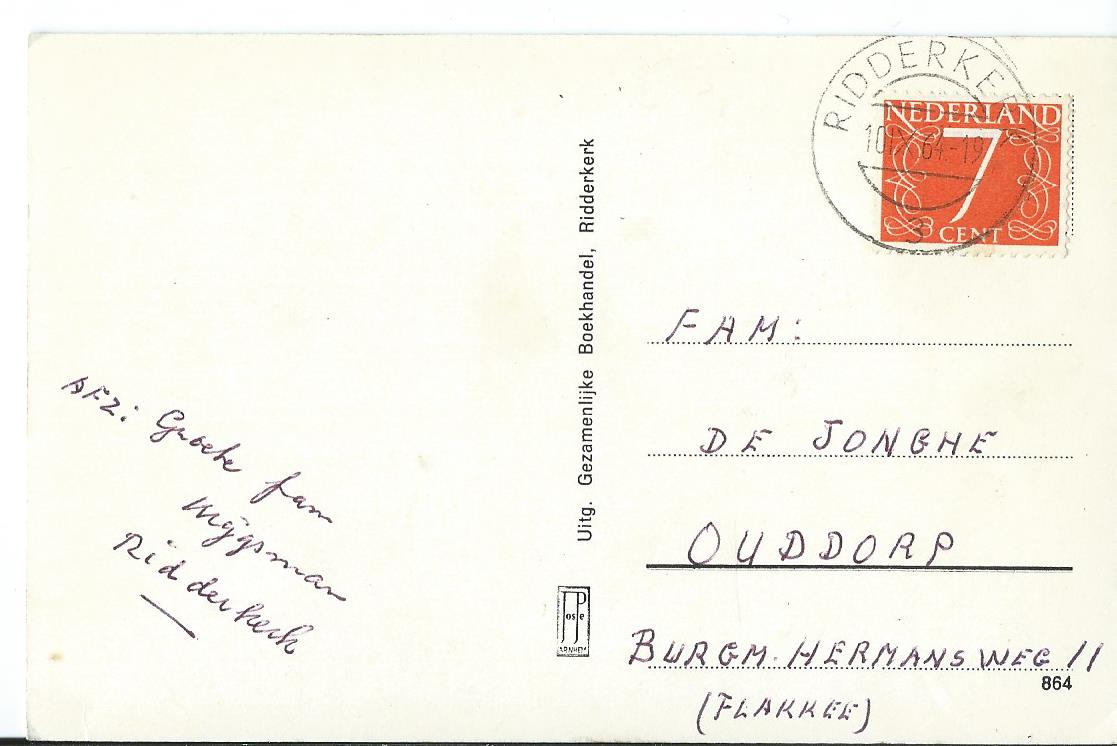 RIDDERKERK
10 IX 64-19
3
NEDERLAND
7
CENT
AFZ: Groete fam
Ridderkerk
Uitg. Gezamenlijke Boekhandel, Ridderkerk
JosPe
ARNHEM
FAM:
DE JONGHE
OUDDORP
BURGM. HERMANSWEG 11
864
(FLAKKEE)